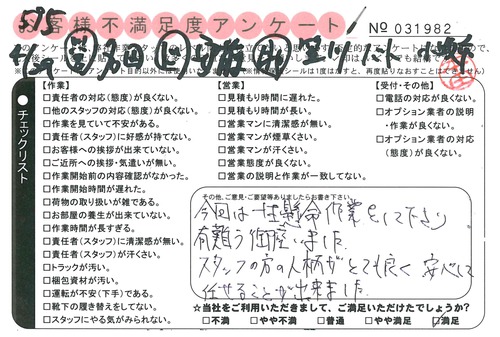 お客様不満足度アンケート
№ 031982
595
チェックリスト
【作業】
□責任者の対応（態度）が良くない。
□他のスタッフの対応（態度）が良くない。
□作業を見ていて不安がある。
□責任者（スタッフ）に好感が持てない。
□お客様への挨拶が出来ていない。
□ご近所への挨拶・気遣いが無い。
□作業開始前の内容確認がなかった。
□作業開始時間が遅れた。
□荷物の取り扱いが雑である。
□お部屋の養生が出来ていない。
□作業時間が長すぎる。
□責任者（スタッフ）に清潔感が無い。
□責任者（スタッフ）が汗くさい。
□トラックが汚い。
□梱包資材が汚い。
□運転が不安（下手）である。
□靴下の履き替えをしてない。
□スタッフにやる気がみられない。
【営業】
□見積もり時間に遅れた。
□見積もり時間が長い。
□営業マンに清潔感が無い。
□営業マンが煙草くさい。
□営業マンが汗くさい。
□営業態度が良くない。
□営業の説明と作業が一致してない。
【受付・その他】
□電話の対応が良くない。
□オプション業者の説明
・作業が良くない。
□オプション業者の対応
（態度）が良くない。
その他、ご意見・ご要望等ありましたらお書き下さい。
今回は一生懸命作業をして下さり
有難う御座いました
スタッフの方の人柄がとても良く 安心して
任せることが出来ました
☆当社をご利用いただきまして、ご満足いただけたでしょうか？
□不満 □やや不満 □普通 □やや満足 □満足